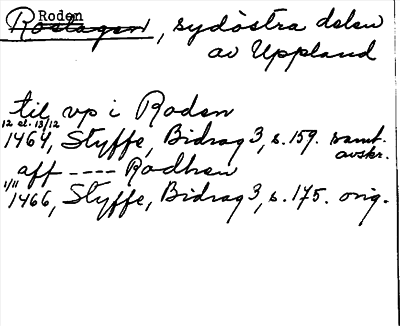 Roden
Rostagen, sydöstra delen
av Uppland
til vp i Roden
12 el. 13/12
1464, Styffe, Bidrag 3, s. 159. samt.
avskr.
aff ---- Rodhen
1/11
1466, Styffe, Bidrag 3, s. 175. orig.